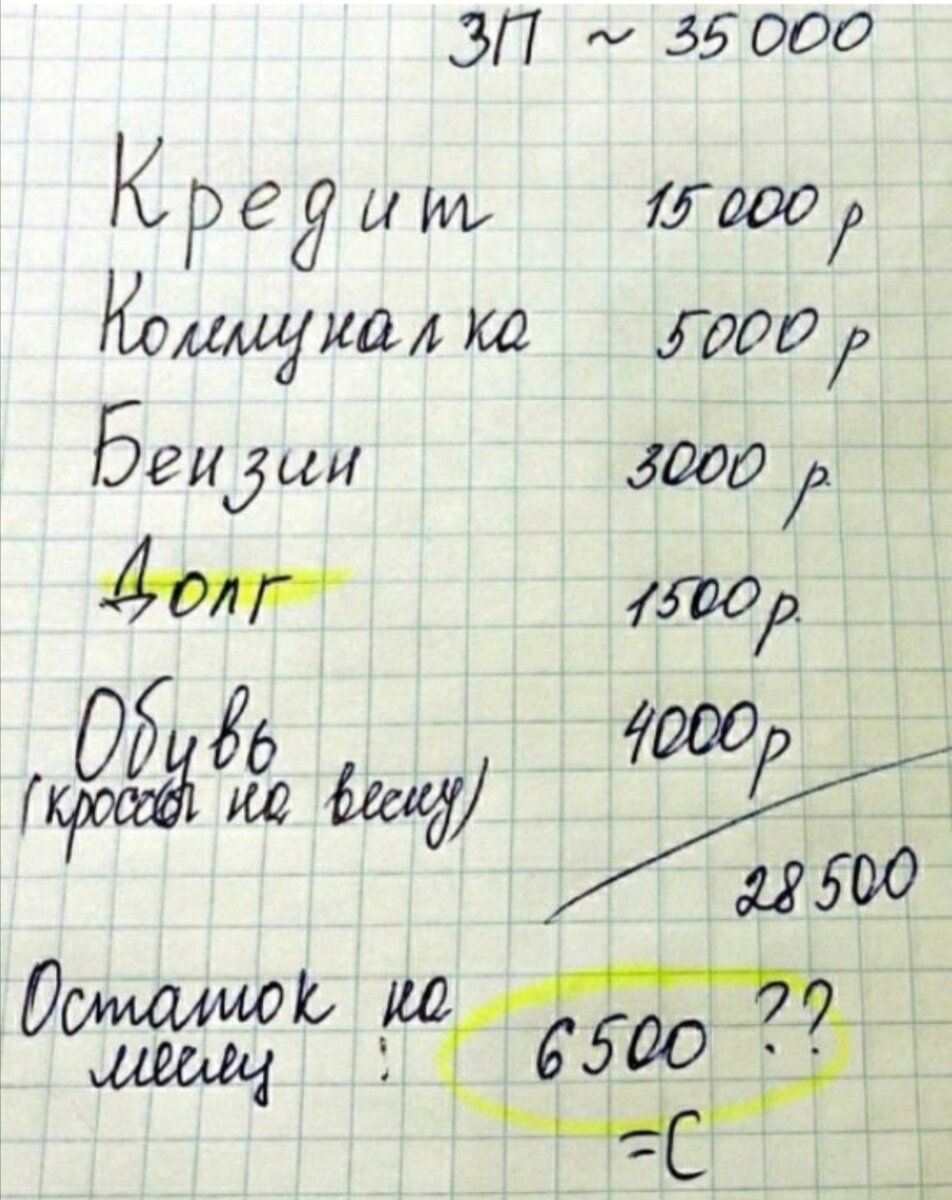 ЗП ~ 35 000
Кредит 15 000 р
Коммуналка 5000 р
Бензин 3000 р.
Долг 1500 р.
Обувь 4000 р
(кроссы на весну)
28 500
Остаток на 6 500 ??
месяц :
=C